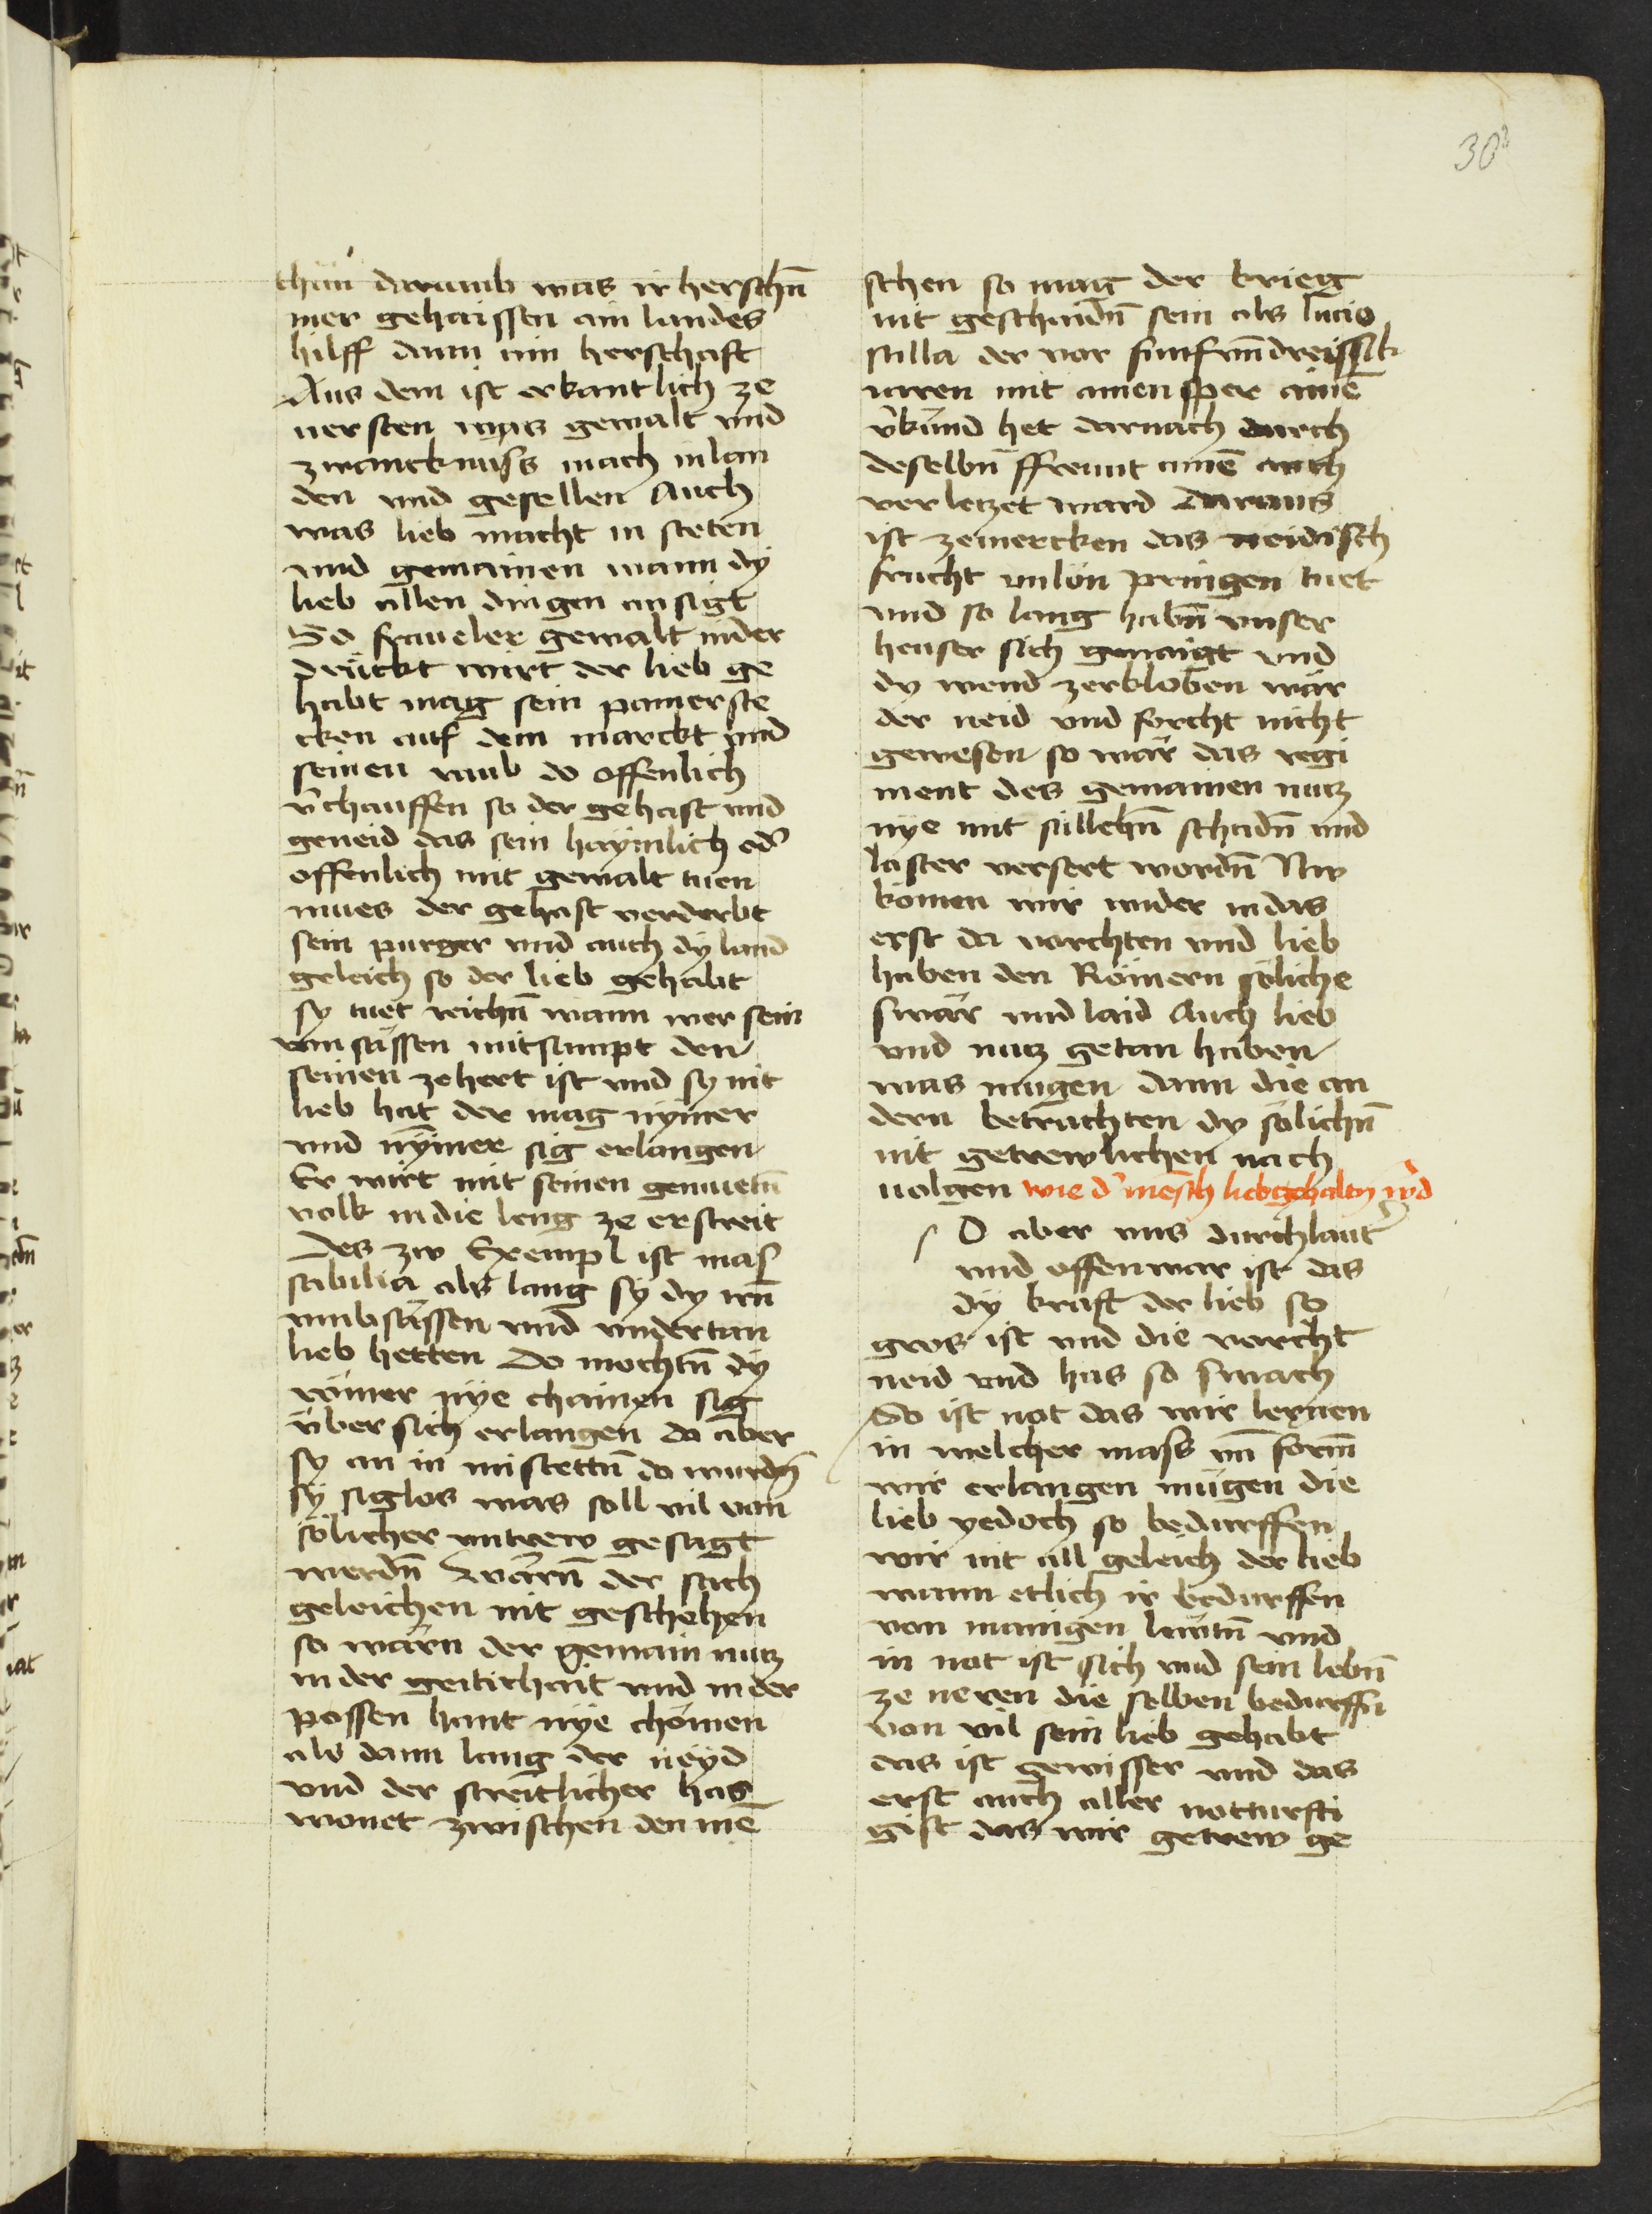 303
thun darumb was ir herschn̄
mer gehaissen ain landes
hilff dann ain herschaft
Aus dem ist erkantlich ze
versten wÿas gewalt vnd
zwancknuss mach in lan
den vnd gesellen Auch
was lieb macht in steten
vnd gemainen wann dÿ
lieb allen dingen an sigt
So fraueler gewalt nider
drückt wirt der lieb ge
habt mag sein paner ste
cken auf dem marckt vnd
seinen raub do offenlich
v̄chauffen so der gehast vnd
geneid das sein haÿmlich od̄
offenlich mit gewalt tuen
mues der gehast verderbt
sein purger vnd auch dÿ land
geleich so der lieb gehabt
sy tuet reichn̄ wann wer sein
vmsässen mitsampt den
seinen zehert ist vnd sy nit
lieb hat der mag nÿmer
vnd nÿmer sig erlangen
Er wirt mit seinen genuetn̄
volk in die leng ze erstreit
Des zw Exempl ist mas
sabilia als lang sÿ dy irn̄
vmbsässen vnd vndertan
lieb hetten Do mochtn̄ dÿ
römer nÿe chainen sig
über sich erlangen do aber
sy an in mistettn̄ do wurdn̄
sÿ siglos was soll vil von
sölicher vntrew gesagt
werdn̄ wärn̄ der sach
geleichen nit geschehen
so wärn der gemain nutz
in der geitichait vnd in der
possen hant nÿe chömen
als dann lang der neÿd
vnd der streitlicher has
wonet zwischen den mē
schen so mag der krieg
nit geschaidn̄ sein als lucio
silla der vor funfvn̄dreissik
iaren mit ainen sper ainē
v̄kund het darnach durch
deselbn̄ ffreunt ainē auch
verletzet ward Daraus
ist zemercken das neidisch
frucht vnlön pringen tuet
vnd so lang habn̄ vnser
heuser sich genaigt vnd
dy wend zerkloben wär
der neid vnd forcht nicht
gewesen so wär das regi
ment des gemainen nutz
nÿe mit sällchn̄ schadn̄ vnd
laster versert wordn̄ Nw
kömen wir wider in das
erst da vorchten vnd lieb
haben den Römern söliche
swär vnd laid Auch lieb
vnd nutz getan haben
was mugen dann die an
dern betrachten dy sölichn̄
nit getrewlichen nach
uolgen wie d̄ mensch liebgehalten w̄d
O aber uns durchlauter
vnd offenwar ist das
dÿ kraft der lieb so
gros ist vnd die vorcht
neid vnd has so swach
So ist not das wir lernen
in welcher mass vn̄ form
wir erlangen mügen die
lieb yedoch so bedurffen
wir nit all geleich der lieb
wann etlich ir bedurffen
von manigen lawtn̄ vnd
in not ist sich vnd sein lebn̄
ze neren die selben bedurffn̄
von vil sein lieb gehabt
das ist gewisser vnd das
erst auch aller notturfti
gist das wir getrew ge